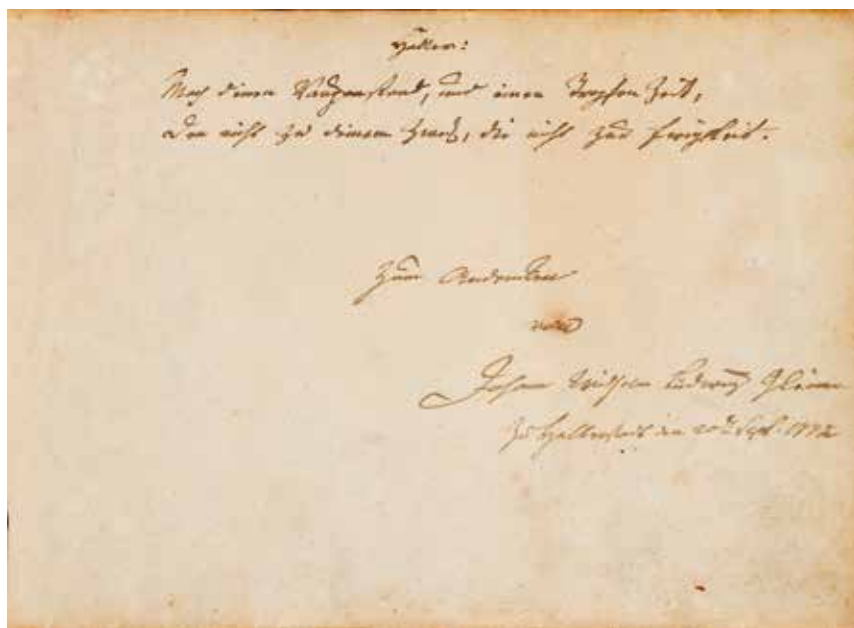 Haller:
Mach deinen Raupenstand, und einen Tropfen Zeit,
Den nicht zu deinem Zweck, die nicht zur Ewigkeit.
Zum Andenken
von
Johann Wilhelm Ludewig Gleim
Zu Halberstadt den 20t Sept. 1772